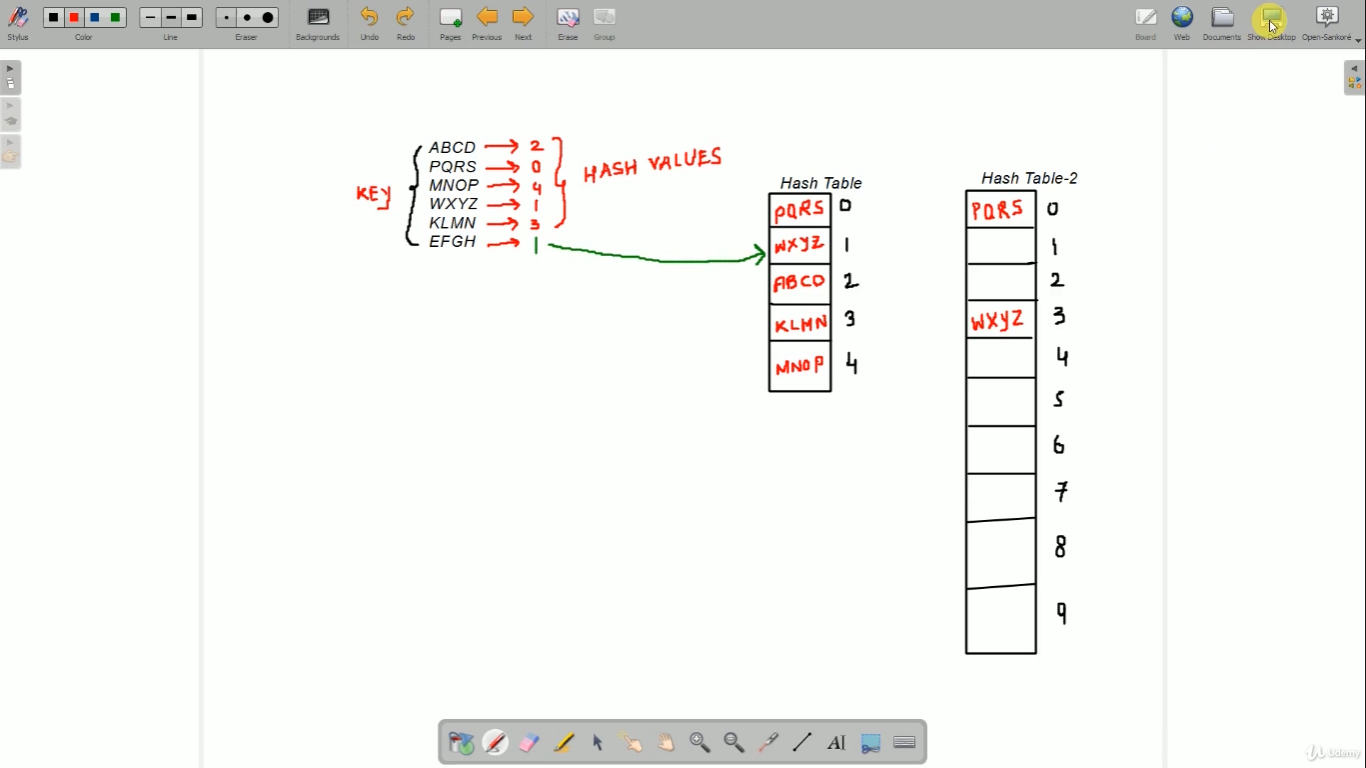 Stylus Color Line Eraser Backgrounds Undo Redo Pages Previous Next Erase Group Board Web Documents Show Desktop Open-Sankoré
KEY
ABCD 2
PQRS 0
MNOP 4
WXYZ 1
KLMN 3
EFGH 1
HASH VALUES
Hash Table
PQRS 0
WXYZ 1
ABCD 2
KLMN 3
MNOP 4
Hash Table-2
PQRS 0
1
2
WXYZ 3
4
5
6
7
8
9
AI
Udemy